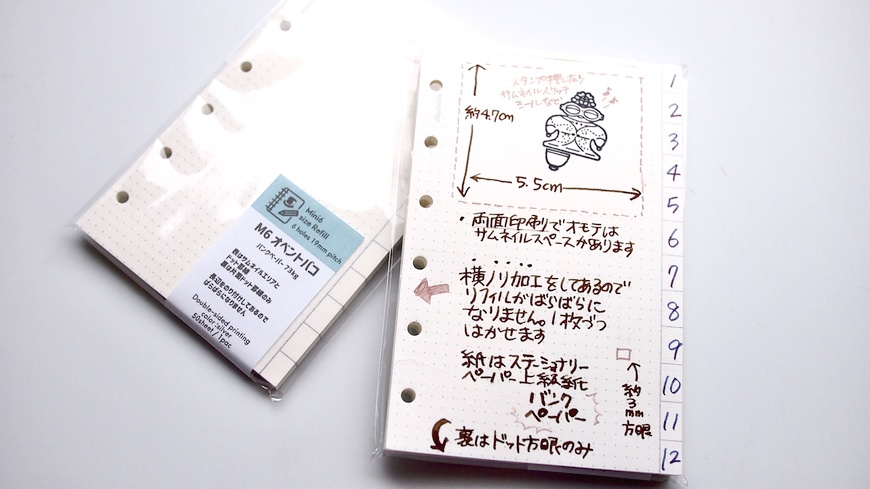 Mini6
size Refill
6 holes 19mm pitch
M6 オペントバコ
バンクペーパー 73kg
表はサムネイルエリアと
ドット罫線
裏は片面ドット罫線のみ
長辺をのり付けしてあるので
ばらばらになりません
Double-sided printing
color:silver
50sheet / 1pac
スタンプ押したり
サムネイルスケッチ
シールなど
約4.7cm
5.5cm
・両面印刷でオモテは
サムネイルスペースがあります
横ノリ加工をしてあるので
リフィルがばらばらに
なりません。1枚づつ
はがせます
紙はステーショナリー
ペーパー上級紙
バンク
ペーパー
約
3
mm
方眼
裏はドット方眼のみ
1
2
3
4
5
6
7
8
9
10
11
12